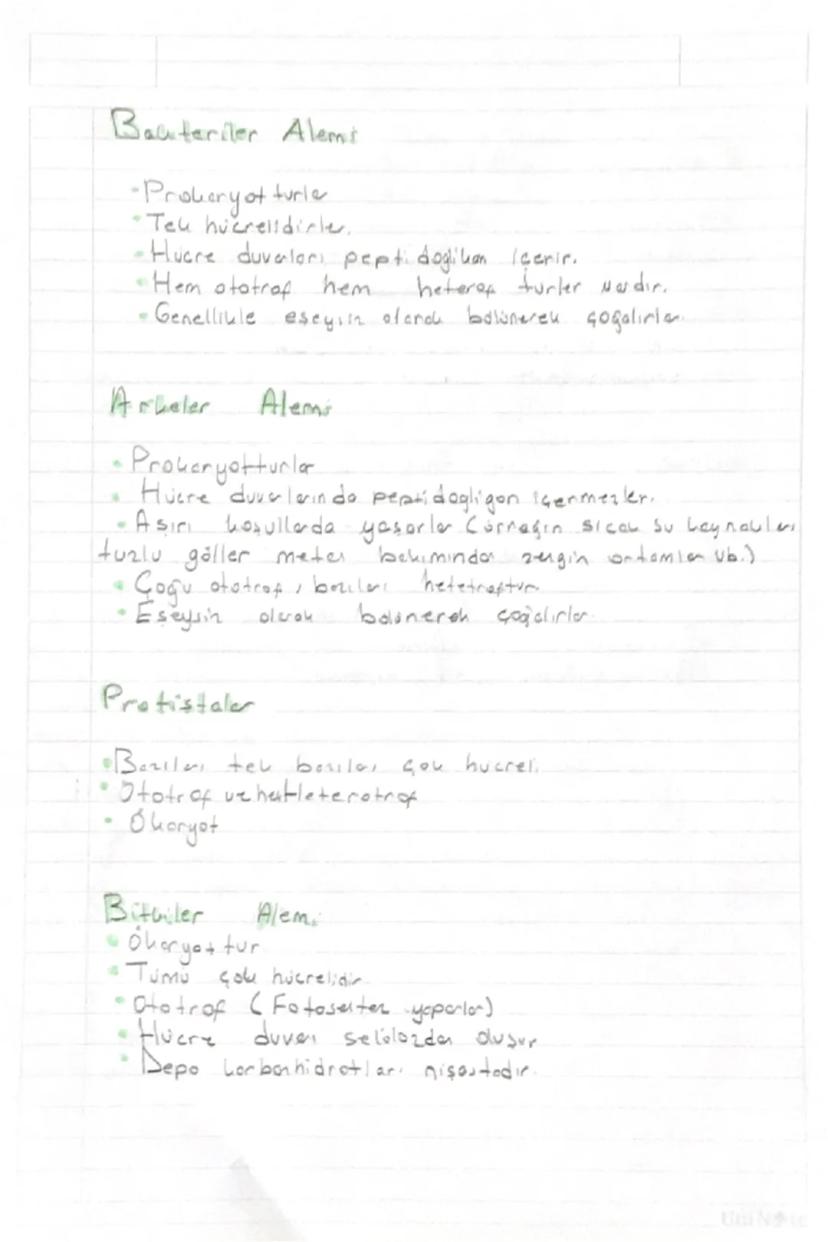 Bakteriler Alemi
• Prokaryot turlar
• Tek hücrelidirler.
• Hücre duvarları peptidoglikan içerir.
• Hem ototrof hem heterof turler vardır.
• Genellikle eşeysiz olarak bölünerek çoğalırlar.
Arkeler Alemi
• Prokaryotturlar
• Hücre duvarlarında peptidogligan içermezler.
• Aşırı koşullarda yaşarlar (örneğin sıcak su kaynakları
tuzlu göller metan bakımından zengin ortamlar vb.)
• Çoğu ototrof, bazıları hetetroftur.
• Eşeysiz olarak bölünerek çoğalırlar.
Protistalar
• Bazıları tek bazıları çok hücreli
• Ototrof ve
• Ökaryot
Bitkiler Alemi
• Ökaryottur
• Tümü çok hücrelidir.
• Ototrof (Fotosentez yaparlar)
• Hücre duvarı selülozdan oluşur
• Depo karbonhidratları nişastadır.
UniNote